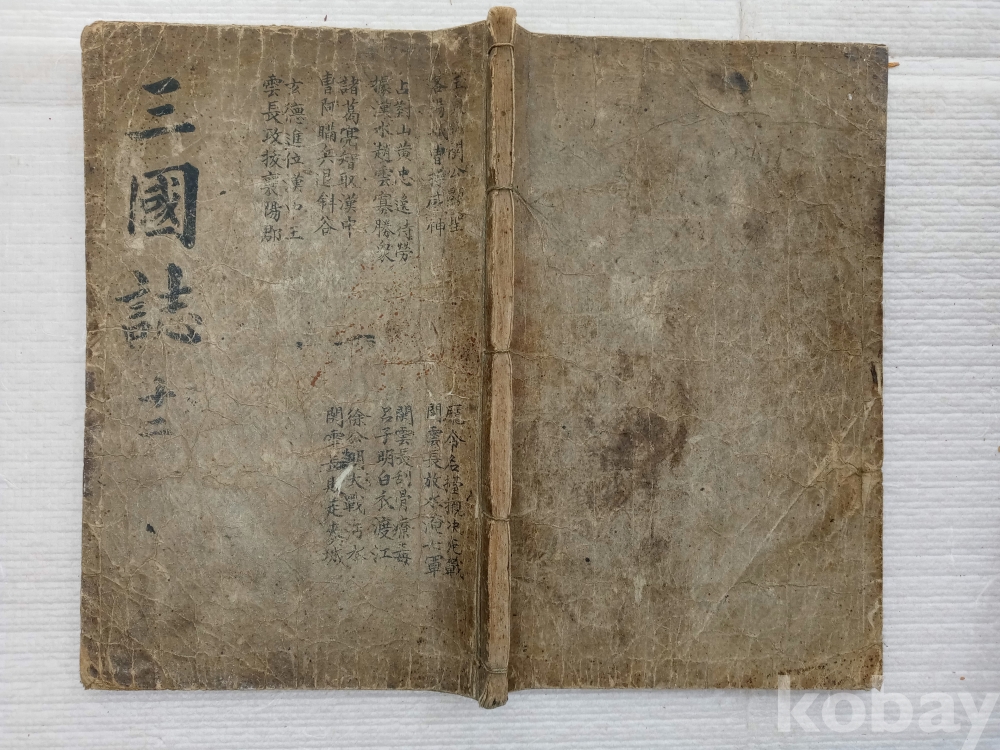 三國誌 十二
山關公顯聖
洛陽城曹操感神
占對山黃忠逸待勞
據漢水趙雲寡勝衆
諸葛亮智取漢中
曹阿瞞兵退斜谷
玄德進位漢中王
雲長攻拔襄陽郡
龐令名擡櫬决死戰
關雲長放水淹七軍
關雲長刮骨療毒
呂子明白衣渡江
徐公明大戰沔水
關雲長敗走麥城
kobay